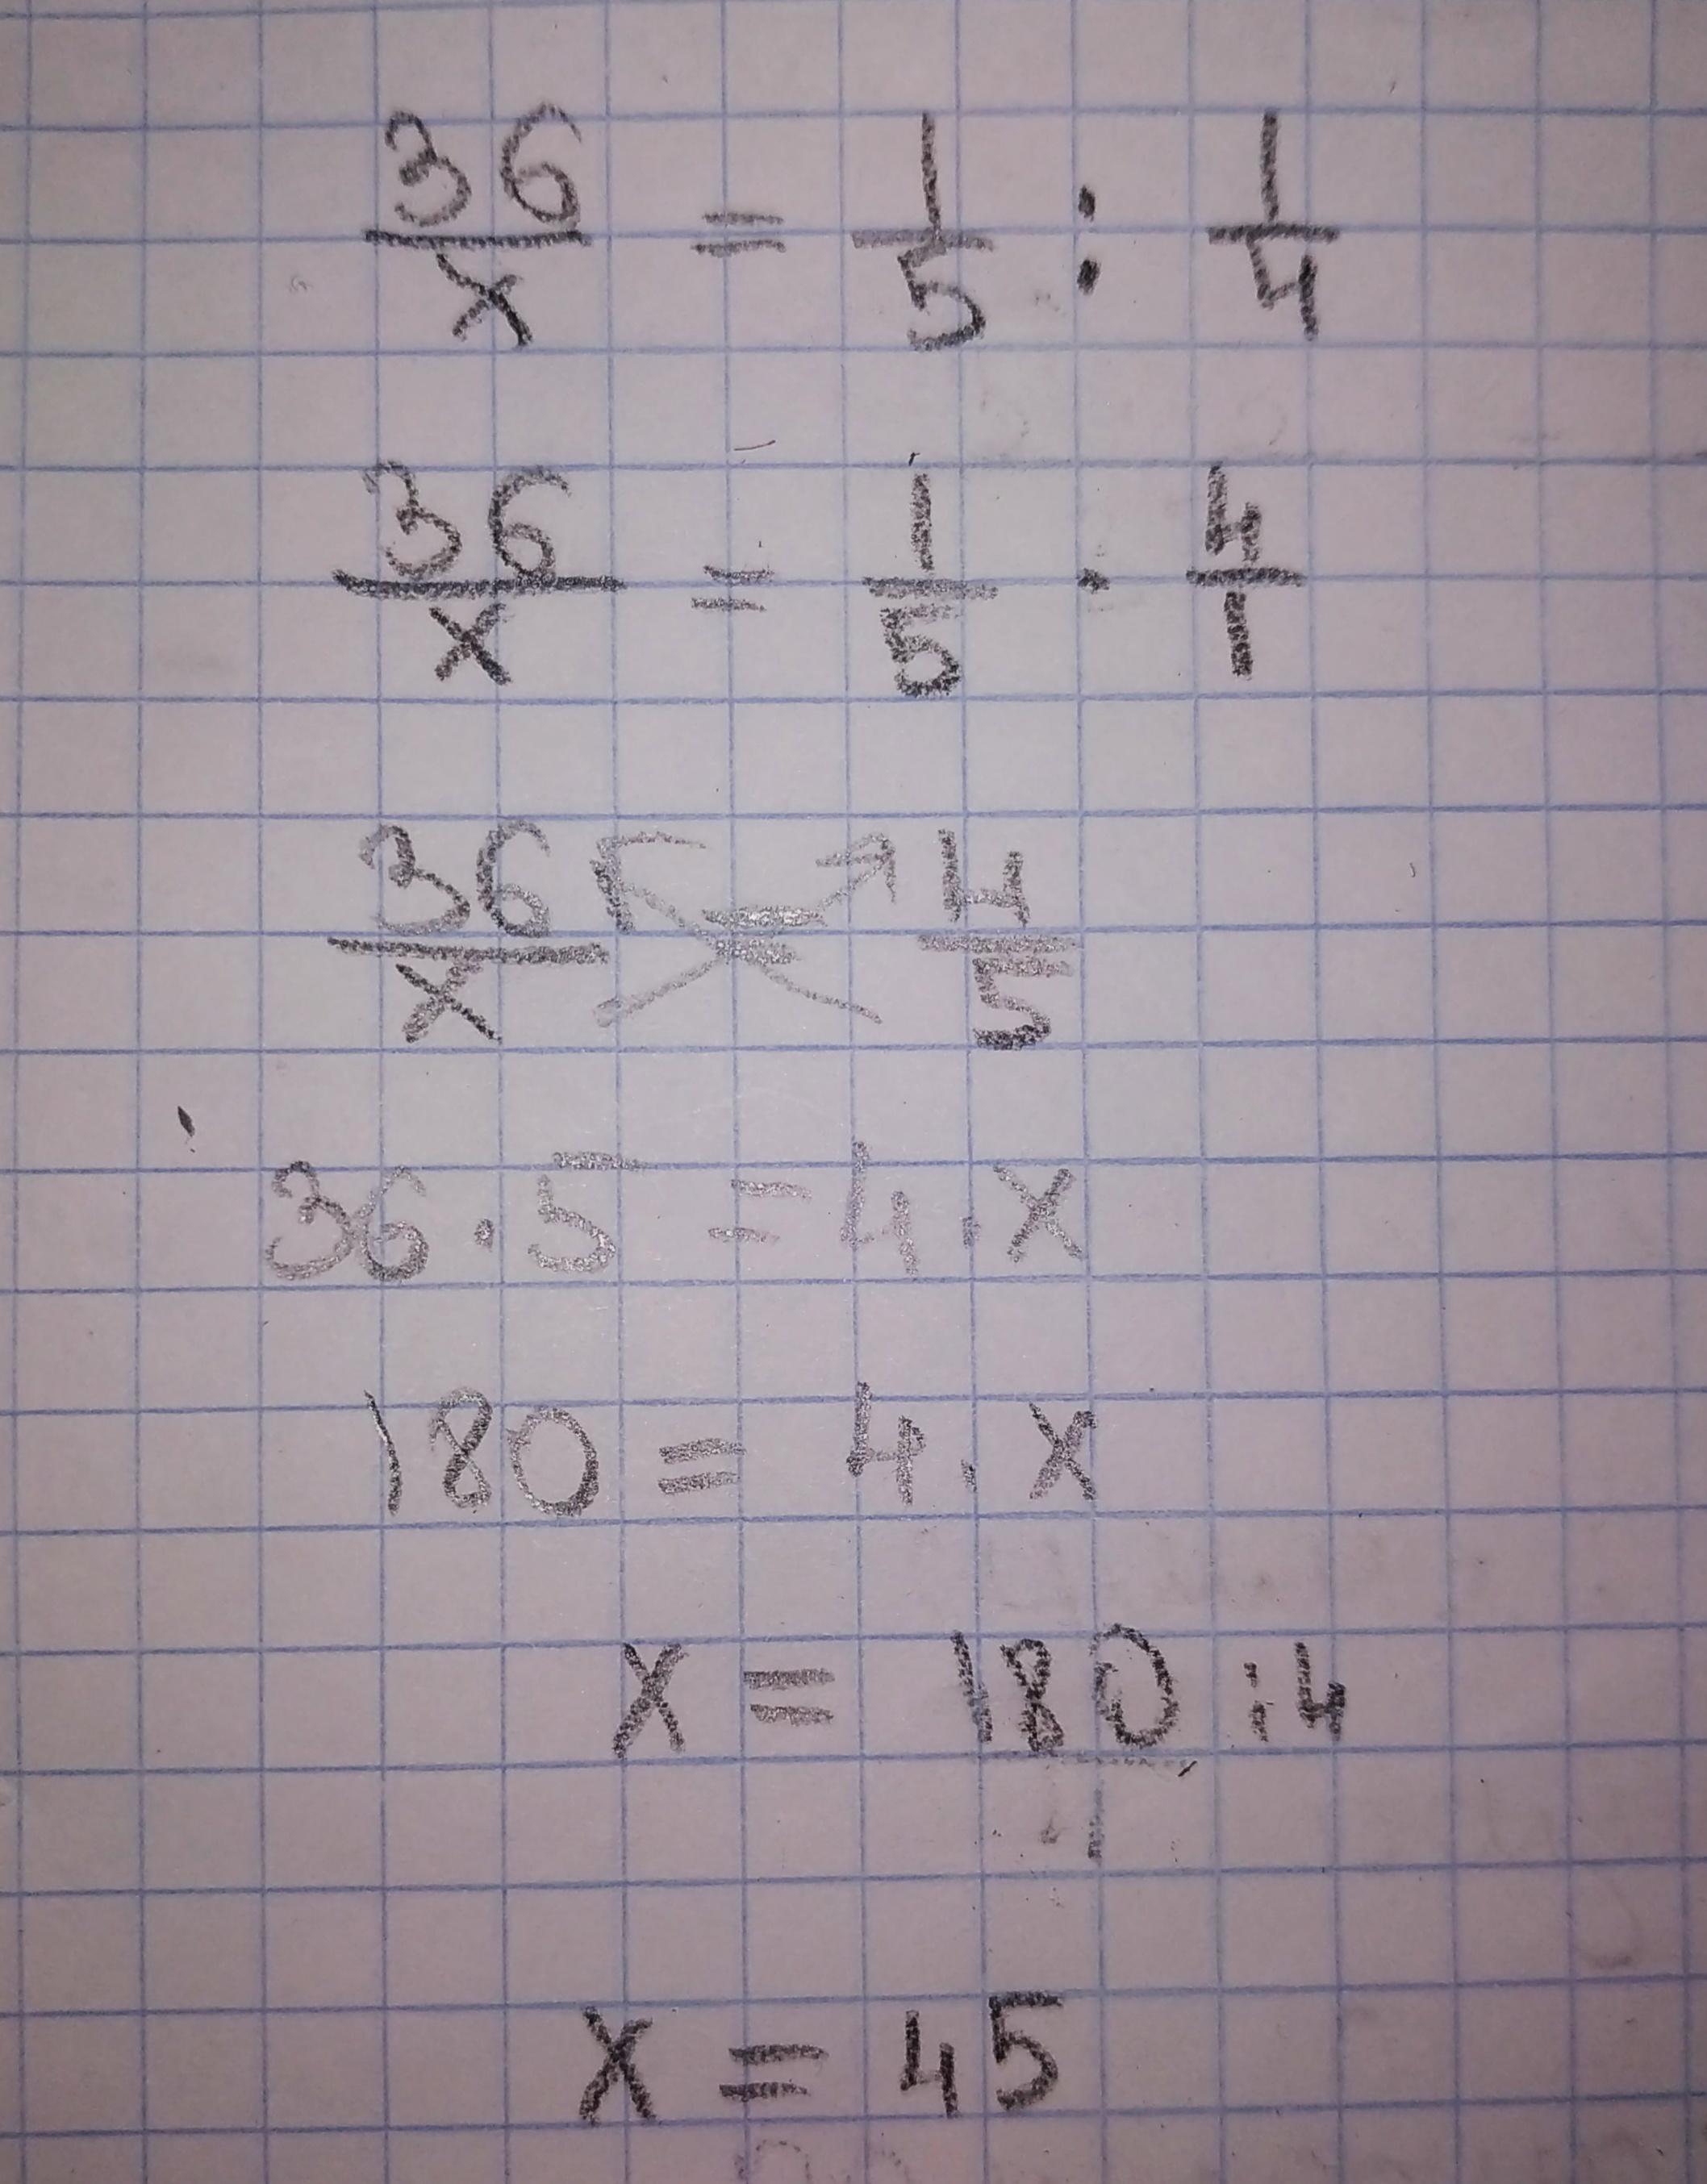 36/x = 1/5 : 1/4
36/x = 1/5 · 4/1
36/x = 4/5
36 · 5 = 4 · x
180 = 4 . x
x = 180 : 4
x = 45